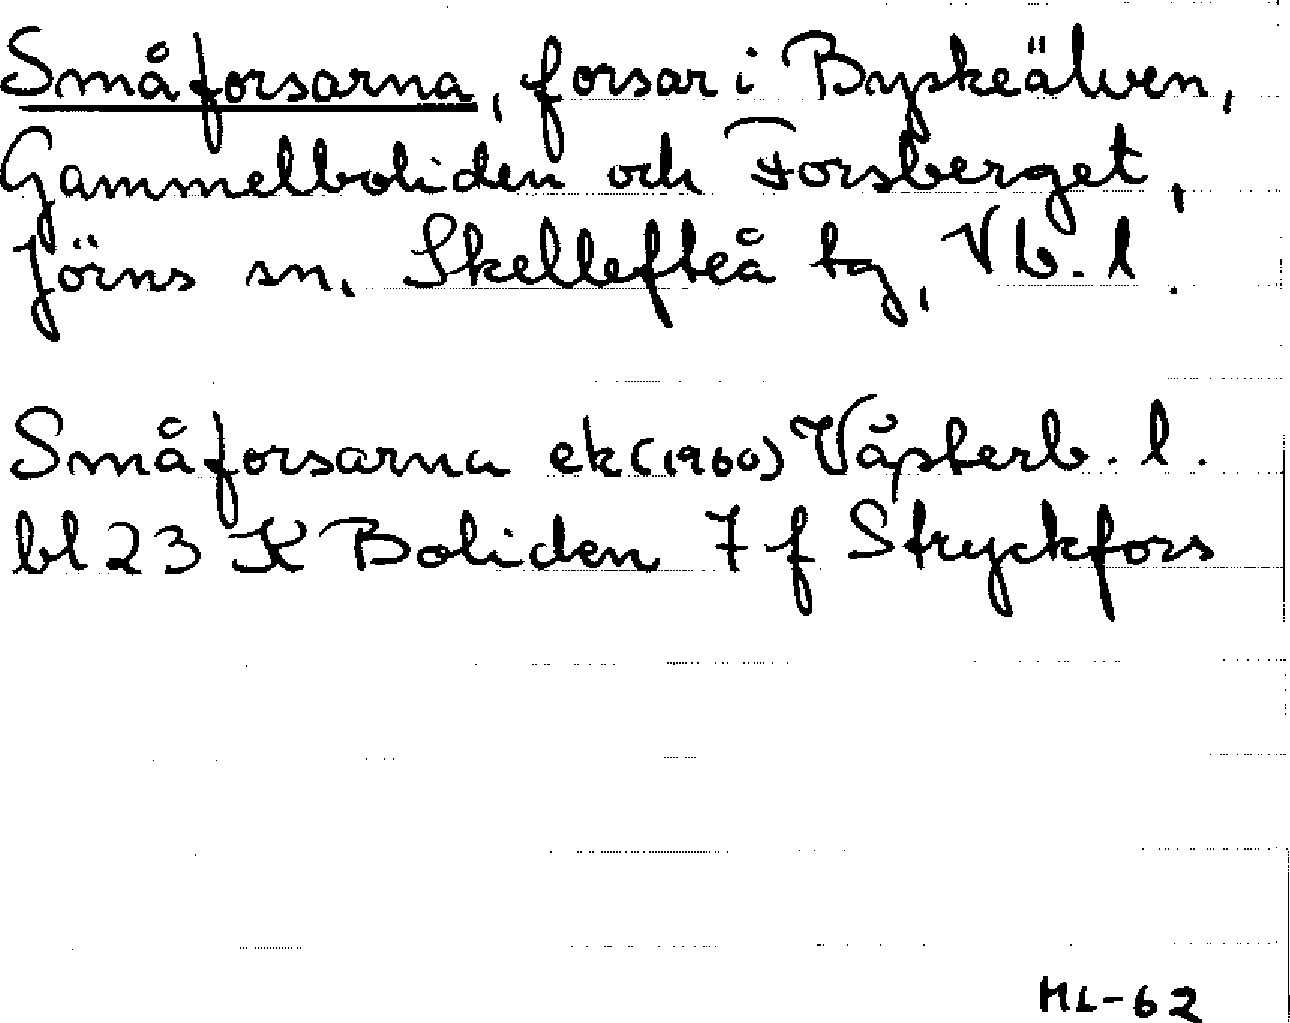 Småforsarna, forsar i Byskeälven,
Gammelboliden och Forsberget,
Jörns sn, Skellefteå tg, Vb. l.
Småforsarna ek (1960) Västerb. l.
bl 23 K Boliden 7 f Stryckfors
ML-62